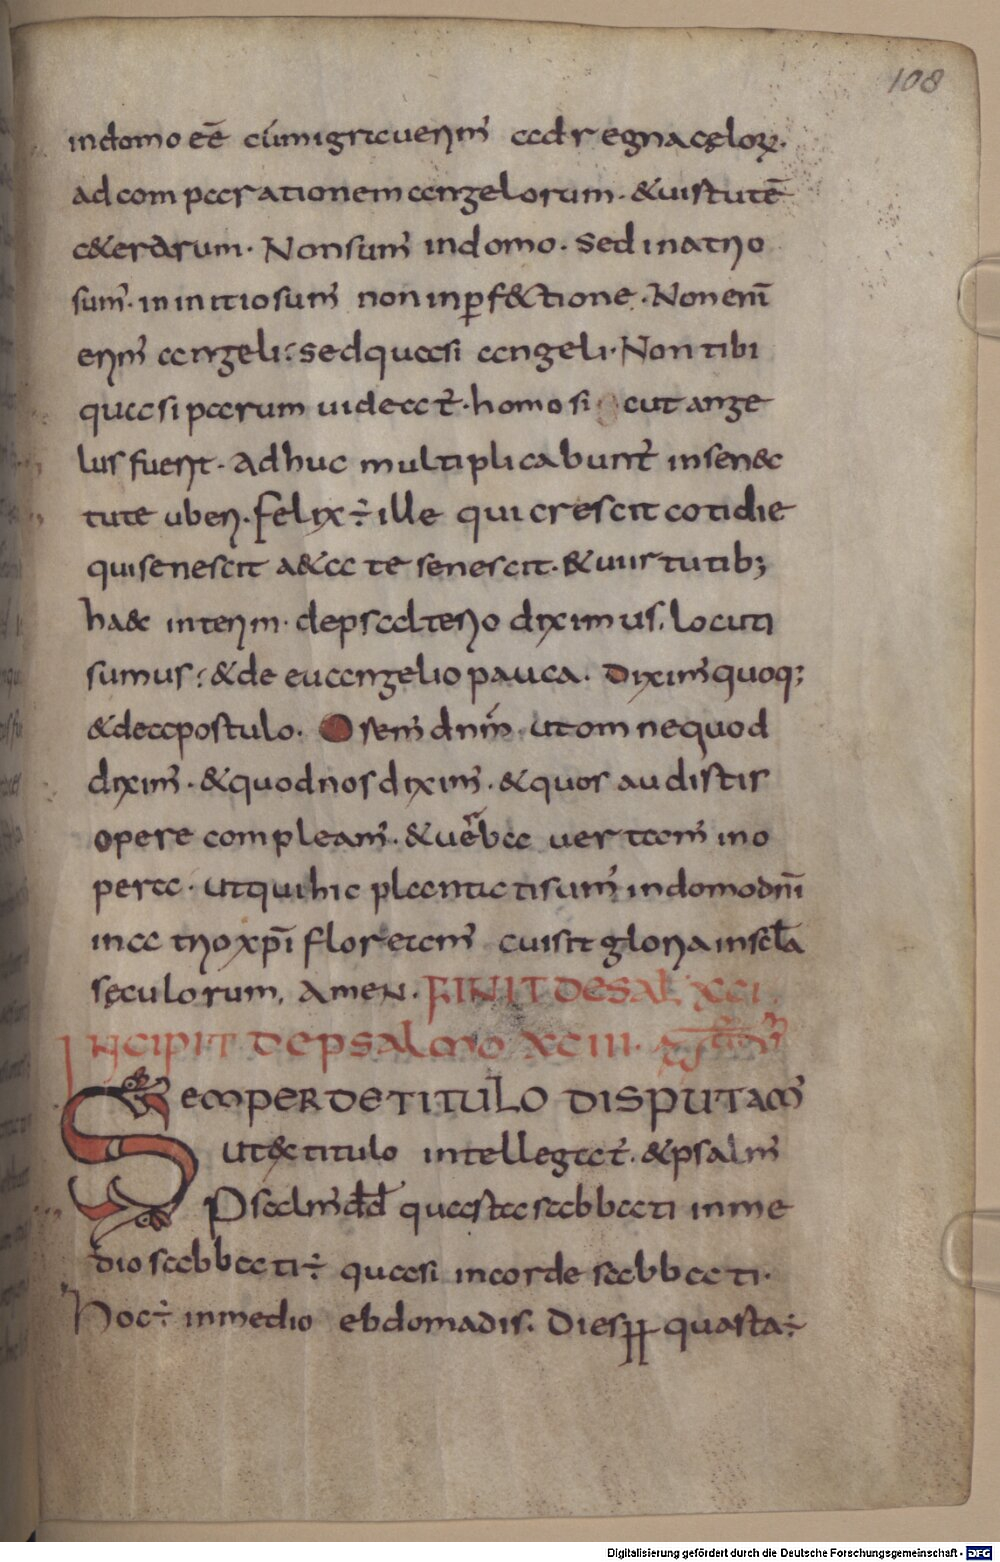 108
indomo eē cūmigrauerim᾽ ad regna cęlorꝝ·
ad comparationem angelorum· &uirtutē
c&erarum· Nonsum᾽ indomo· sed inatrio
sum᾽· in initiosum᾽ non inꝑf&tione· Nonenī
erim᾽ angeli: sedquasi angeli· Non tibi
quasi parum uideat᾽· homo si cut ange
lus fuerit· adhuc multiplicabunt᾽ insenec
tute uberi· felix ÷ ille qui crescit cotidie
quisenescit a&a te senescit· &uirtutib;
haec interim· depsalterio diximus, locuti
sumus: &de euangelio pauca· Dixim᾽quoq;
&deapostulo· Osem᾽ dnm̄· ut omnequod
dixim᾽· &quodnosdixim᾽· &quos audistis
opere compleam᾽· &uerba uertam᾽ ino
pera· utquihic plantatisum᾽ indomodnī
ina trioxpī floream᾽ cuiest gloria inscl̄a
sęculorum, amen· FINIT DE SAL XCI
INCIPIT DE PSALMO XCIII·
SEMPER DE TITULO DISPUTAM᾽
ut&titulo intellegat᾽· &psalm᾽
Psalm᾽ dd̄ quarta sabbati inme
dio sabbati ÷ quasi incorde sabbati·
hoc ÷ inmedio ebdomadis· Diesꝑꝑ quarta ÷
Digitalisierung gefördert durch die Deutsche Forschungsgemeinschaft - DFG